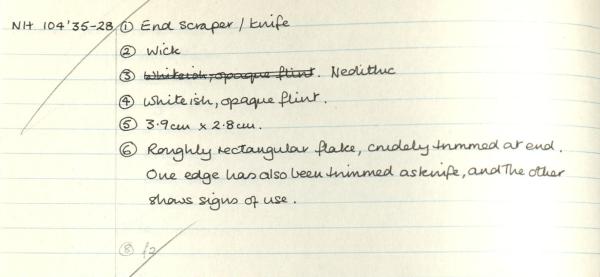 NH 104'35-28 ① End scraper / knife
② Wick
③ Whiteish, opaque flint. Neolithic
④ Whiteish, opaque flint.
⑤ 3.9cm x 2.8cm.
⑥ Roughly rectangular flake, crudely trimmed at end.
One edge has also been trimmed as knife, and the other
shows signs of use.
⑧ f2